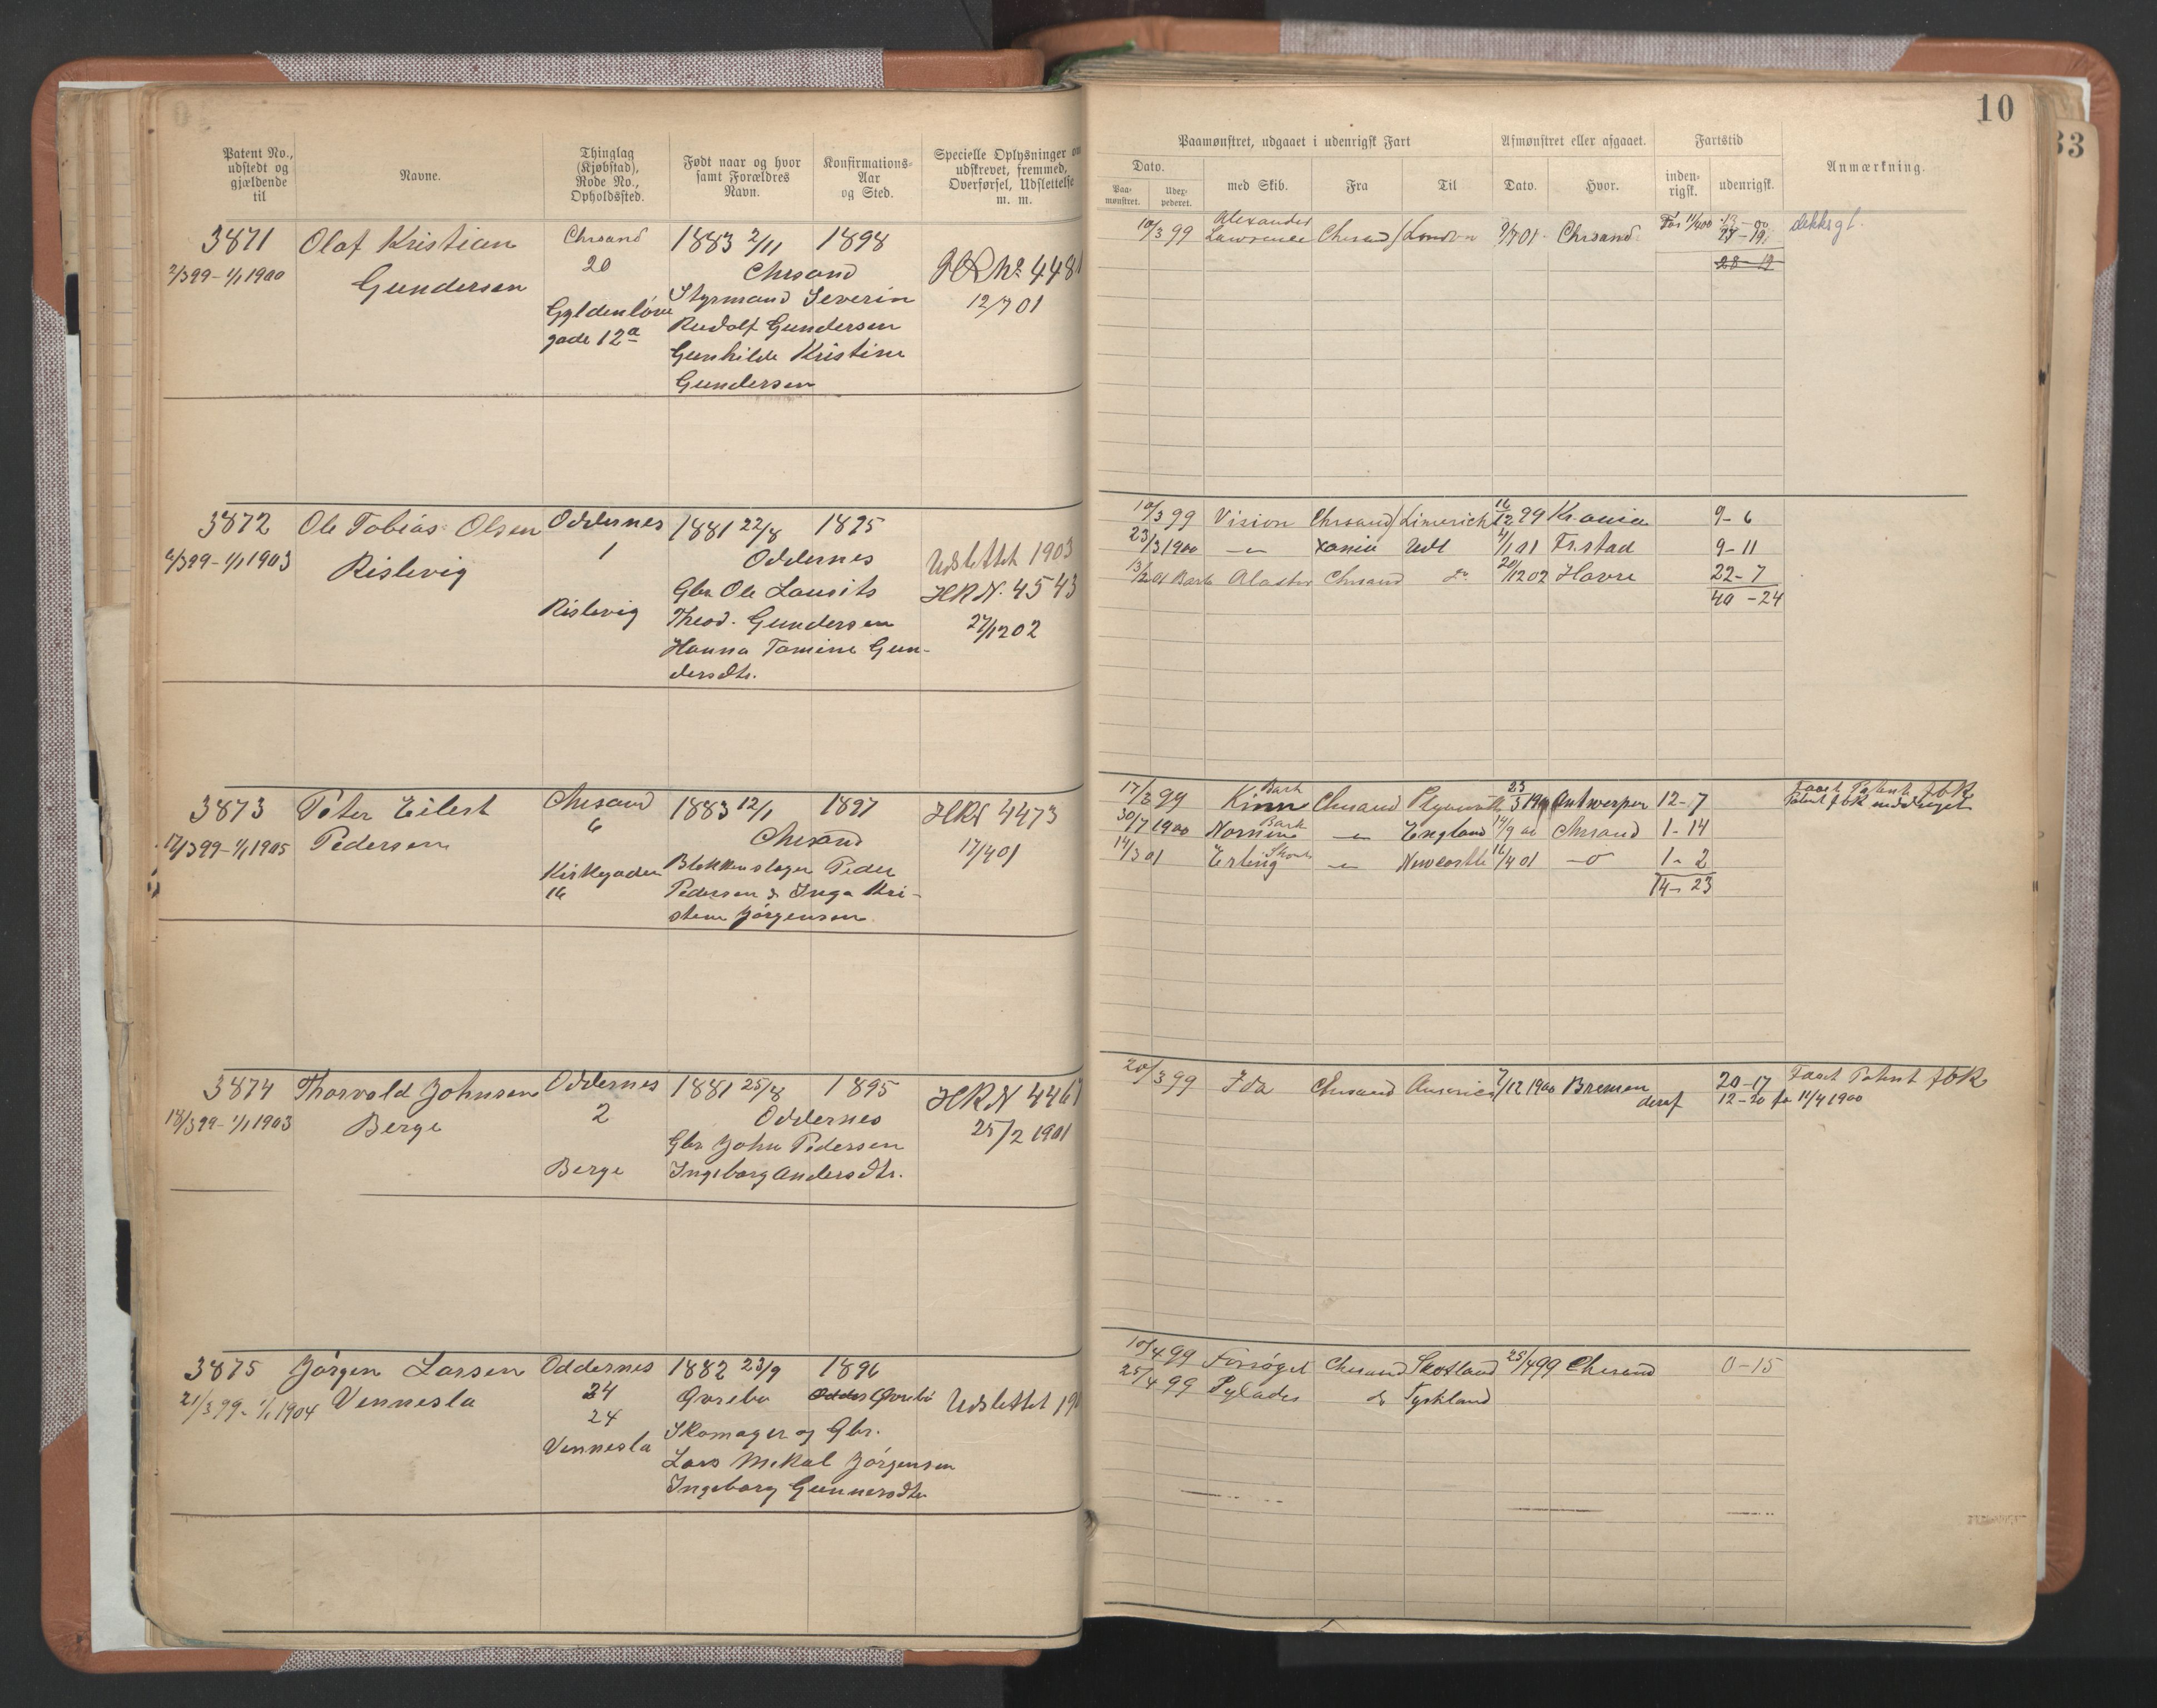 10
33
Patent No., udstedt og gjældende til
Navne.
Thinglag (Kjøbstad), Rode No., Opholdssted.
Født naar og hvor samt Forældres Navn.
Konfirmations-Aar og Sted.
Specielle Oplysninger om udskrevet, fremmed, Overførsel, Udslettelse m. m.
Paamønstret, udgaaet i udenrigsk Fart
Afmønstret eller afgaaet.
Fartstid
Anmærkning.
Dato.
Paa-mønstret.
Udex-pederet.
med Skib.
Fra
Til
Dato.
Hvor.
inden-rigsk.
udenrigsk.
3871 Olaf Kristian Chrsand 1883 2/11 1898
2/3 99 - 1/1 1900 Gundersen 20 Chrsand HR No 448
Gyldenløve Styrmand Severin 12/7 01
gade 12a Rudolf Gundersen
Gunhilde Kristine
Gundersen
10/3 99 Alexander Lawrence Chrsand London 9/7 01 Chrsand
28-19
dekksgt.
3872 Ole Tobias Olsen Oddernes 1881 22/8 1895
6/3 99 - 1/1 1903 Rislevig 1 Oddernes Udslettet 1903
Rislevig Gbr Ole Laurits HRN. 4543
Theod. Gundersen 27/12 02
Hanna Tomine Gun-
dersdtr.
10/3 99 Vision Chrsand Limerick 16/12 99 Krania 9-6
23/3 1900 Xania Udl 4/1 01 Fr.stad 9-11
13/2 01 Bark Alaster Chrsand do 20/12 02 Havre 22-7
40-24
3873 Peter Eilert Chrsand 1883 12/1 1897 HRN 4473
17/3 99 - 1/1 1905 Pedersen 6 Chrsand 17/4 01
Kirkegaden Blokkmager Peder
16 Pedersen & Inga Kri-
stine Jørgensen
17/3 99 Bark Kinn Chrsand Plymouth 23/3 1900 Antwerpen 12-7 Faaet Patent fbK
Patent fbK meddraget
30/7 1900 Bark Nornen England 14/9 00 Chrsand 1-14
14/3 01 Erling Newcastle 16/4 01 1-2
14-23
3874 Thorvald Johnsen Oddernes 1881 25/8 1895 HRN 4467
18/3 99 - 1/1 1903 Berge 2 Oddernes 25/2 1901
Gbr John Pedersen
Berge Ingeborg Andersdtr.
20/3 99 Ida Chrsand America 7/12 1900 Bremen 20-17 Faaet Patent fbK
deraf 12-20 fa 11/4 1900
3875 Jørgen Larsen Oddernes 1882 23/9 1896
21/3 99 - 1/1 1904 Vennesla 24 Øvrebø Øvrebø Udslettet 190
24 Skomager og Gbr.
Vennesla Lars Mikal Jørgensen
Ingeborg Gunnersdtr
10/4 99 Forsøget Chrsand Skotland 25/4 99 Chrsand 0-15
25/4 99 Pylades do Tyskland